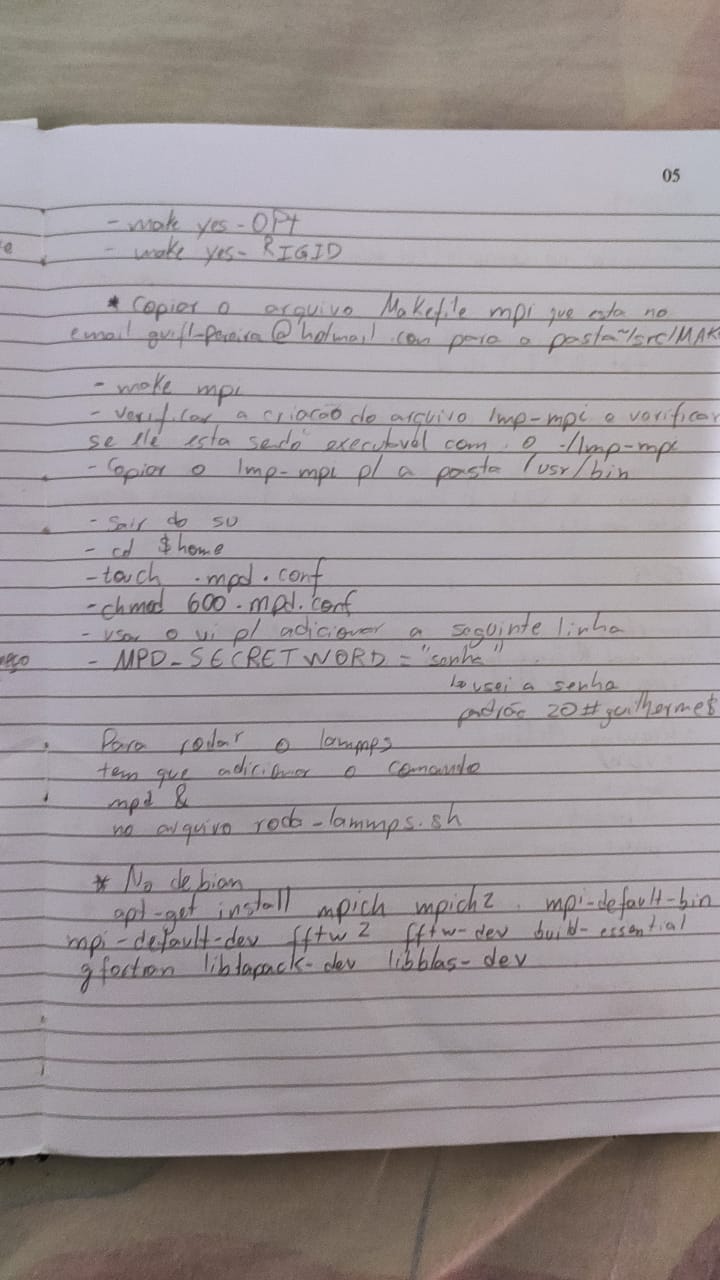 05
- make yes-OPt
- make yes-RIGID
* Copiar o arquivo Makefile mpi que esta no
email @hotmail.com para a pasta ~/src/MAK
- make mpi
- verificar a criacão do arquivo lmp-mpi e verificar
se ele esta sendo executavel com o ./lmp-mpi
- Copiar o lmp-mpi p/ a pasta /usr/bin
- Sair do su
- cd $home
- touch .mpd.conf
- chmod 600 .mpd.conf
- usar o vi p/ adicionar a seguinte linha
- MPD-SECRETWORD = "senha"
↳ usei a senha
padrão 20#guilherme$
Para rodar o lammps
tem que adicionar o comando
mpd &
no arquivo roda-lammps.sh
* No debian
apt-get install mpich mpich2 mpi-default-bin
mpi-default-dev fftw2 fftw-dev build-essential
gfortran liblapack-dev libblas-dev